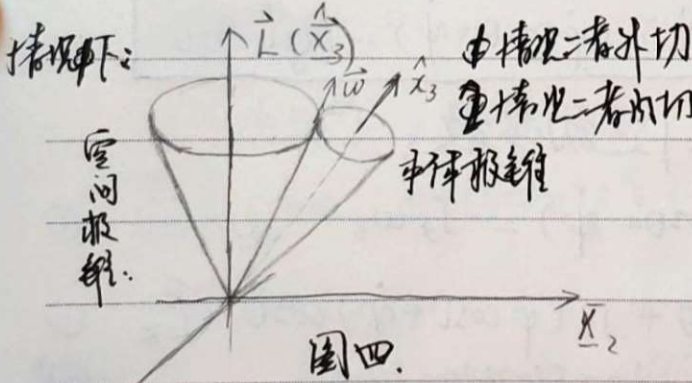 情况甲下：
L⃗ (X̂₃)
ω⃗
x̂₃
由情况二者外切
情况二者内切
空间极锥：
本体极锥
X̄₂
图四.